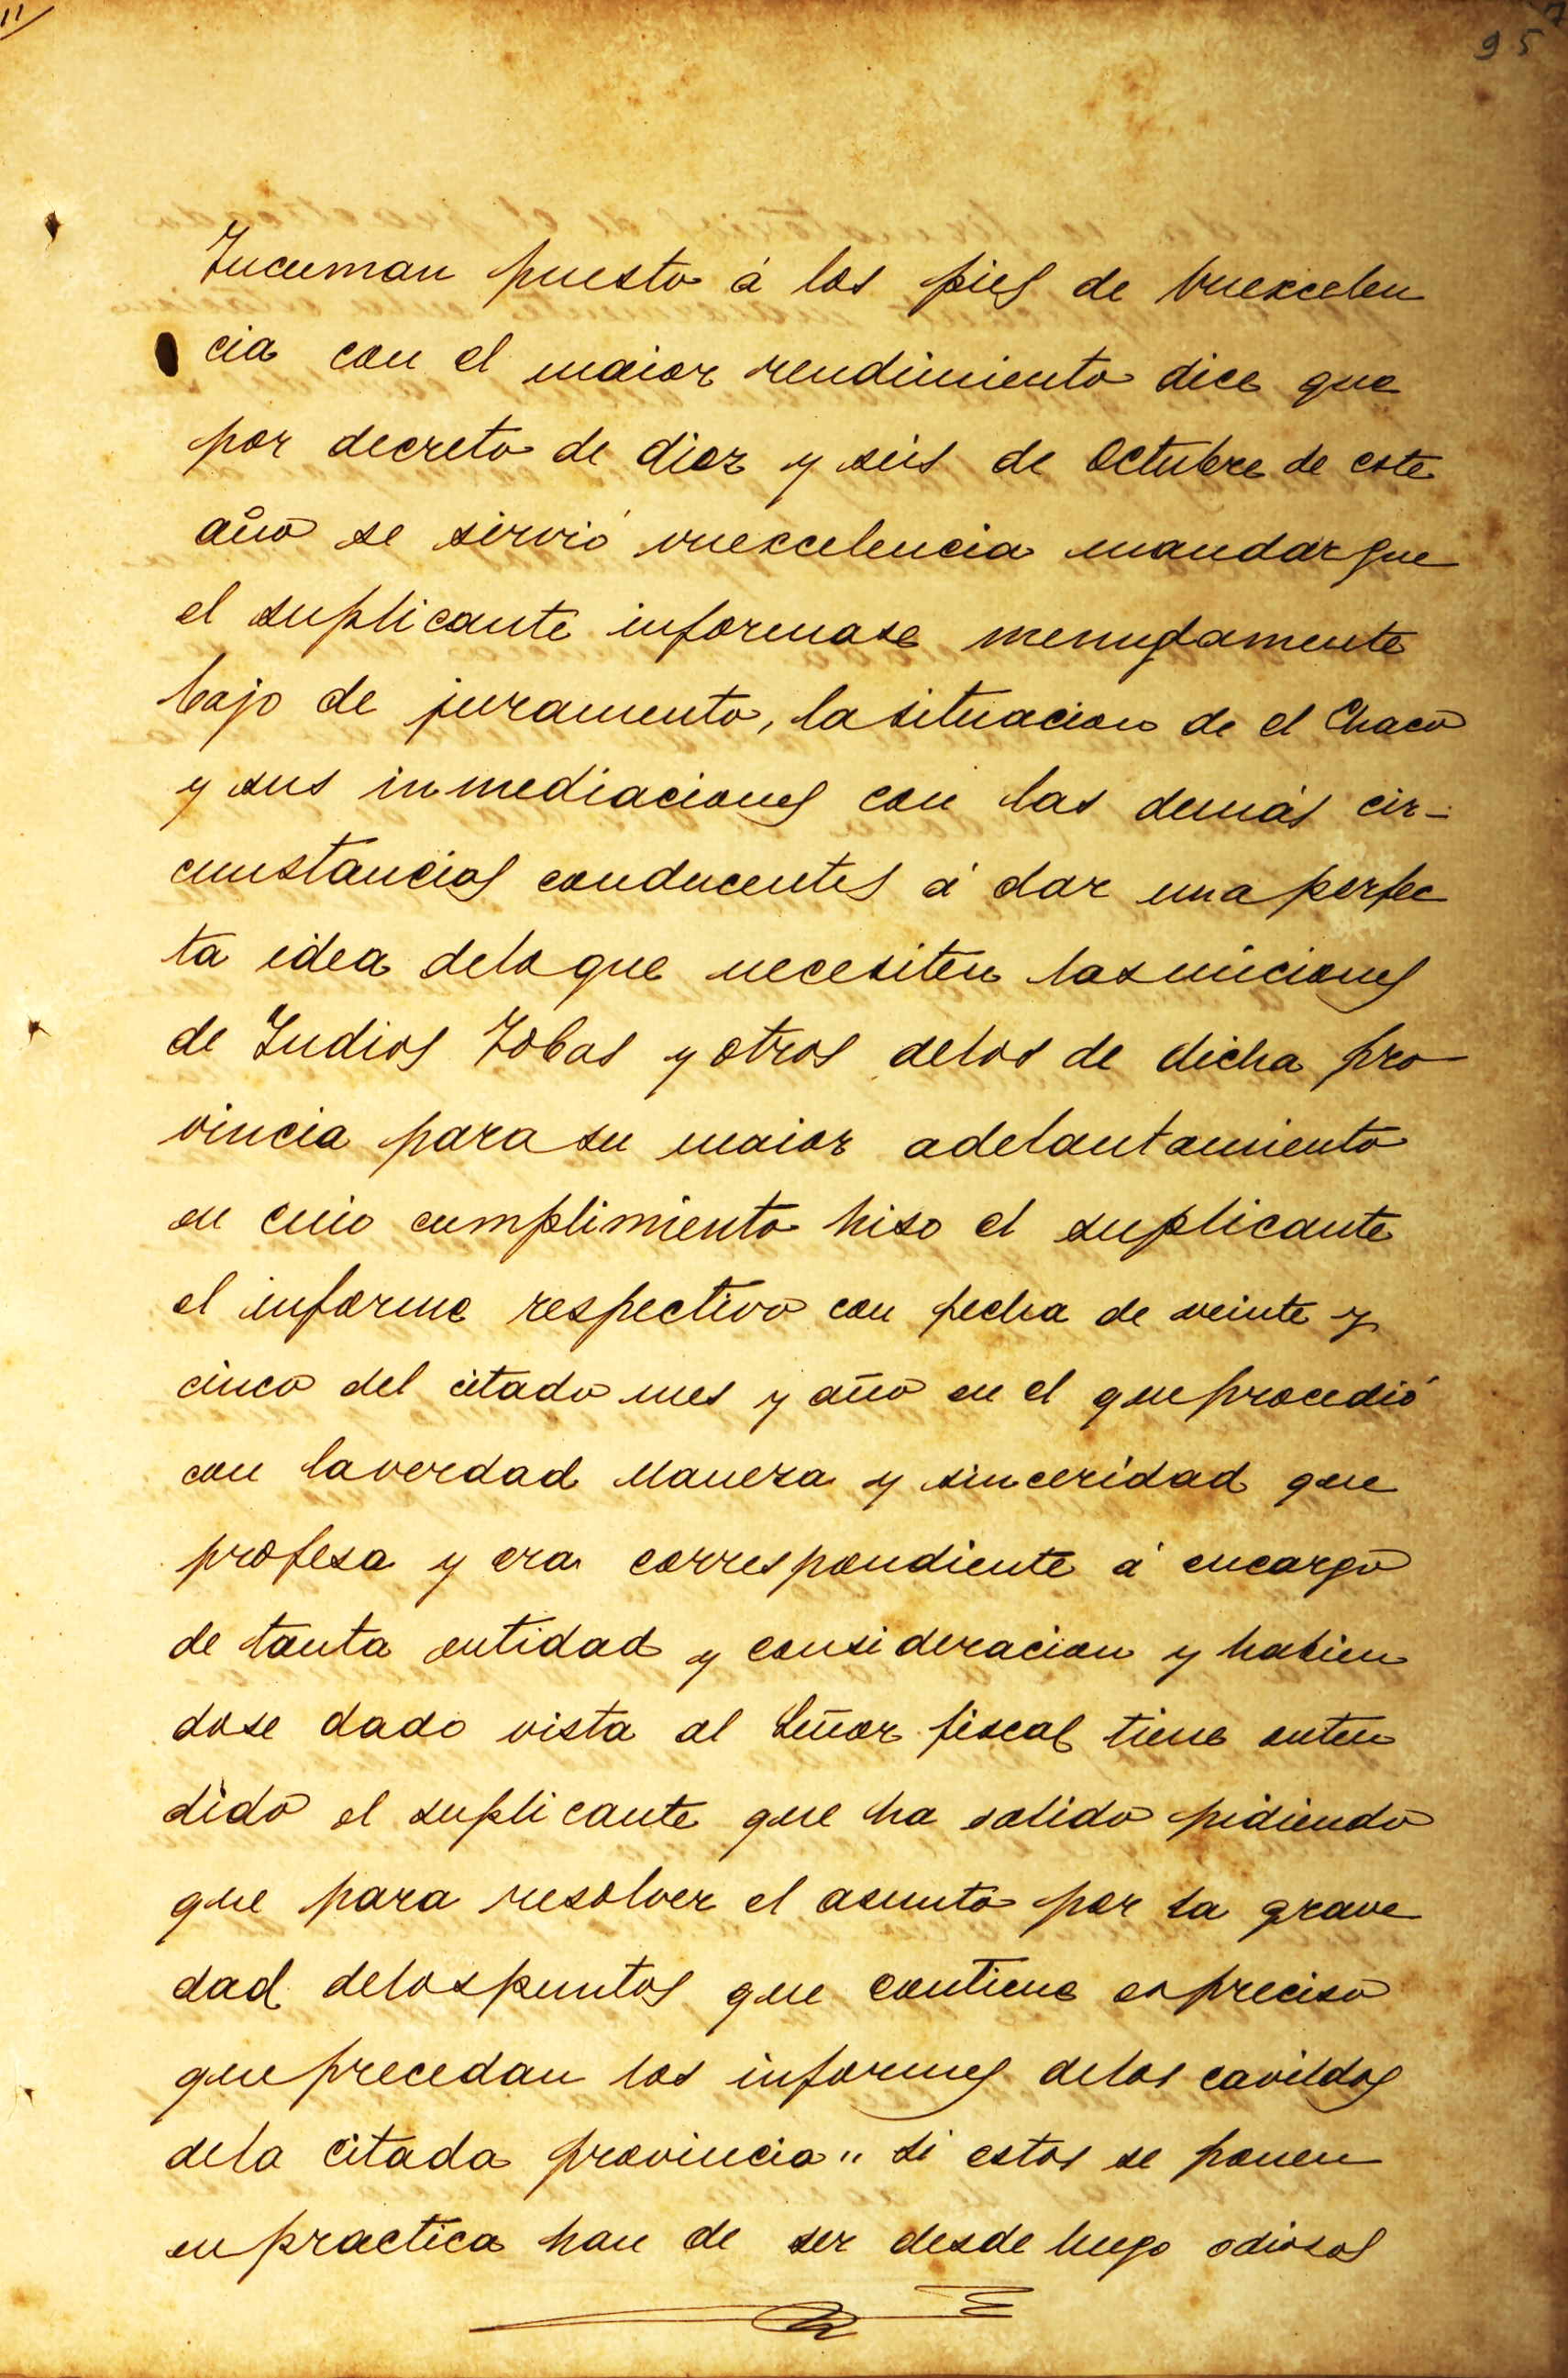 11
95
Tucuman puesto á los pies de Vuexcelen
cia con el maior rendimiento dice que
por decreto de diez y seis de Octubre de este
año se sirvió vuexcelencia mandar que
el suplicante informase menudamente
bajo de juramento, la situacion de el Chaco
y sus inmediaciones con las demás cir-
cunstancias conducentes á dar una perfec
ta idea delo que necesiten las miciones
de Indios Tobas y otros delos de dicha pro
vincia para su maior adelantamiento
en cuio cumplimiento hiso el suplicante
el informe respectivo con fecha de veinte y
cinco del citado mes y año en el que procedió
con la verdad Maneza y sinceridad que
profesa y era correspondiente á encargo
de tanta entidad y consideracion y habien
dose dado vista al Señor fiscal tiene enten
dido el suplicante que ha salido pidiendo
que para resolver el asunto por la grave
dad delos puntos que contiene es preciso
que precedan los informes delos cavildos
dela citada provincia" si estos se ponen
en practica han de ser desde luego odiosos